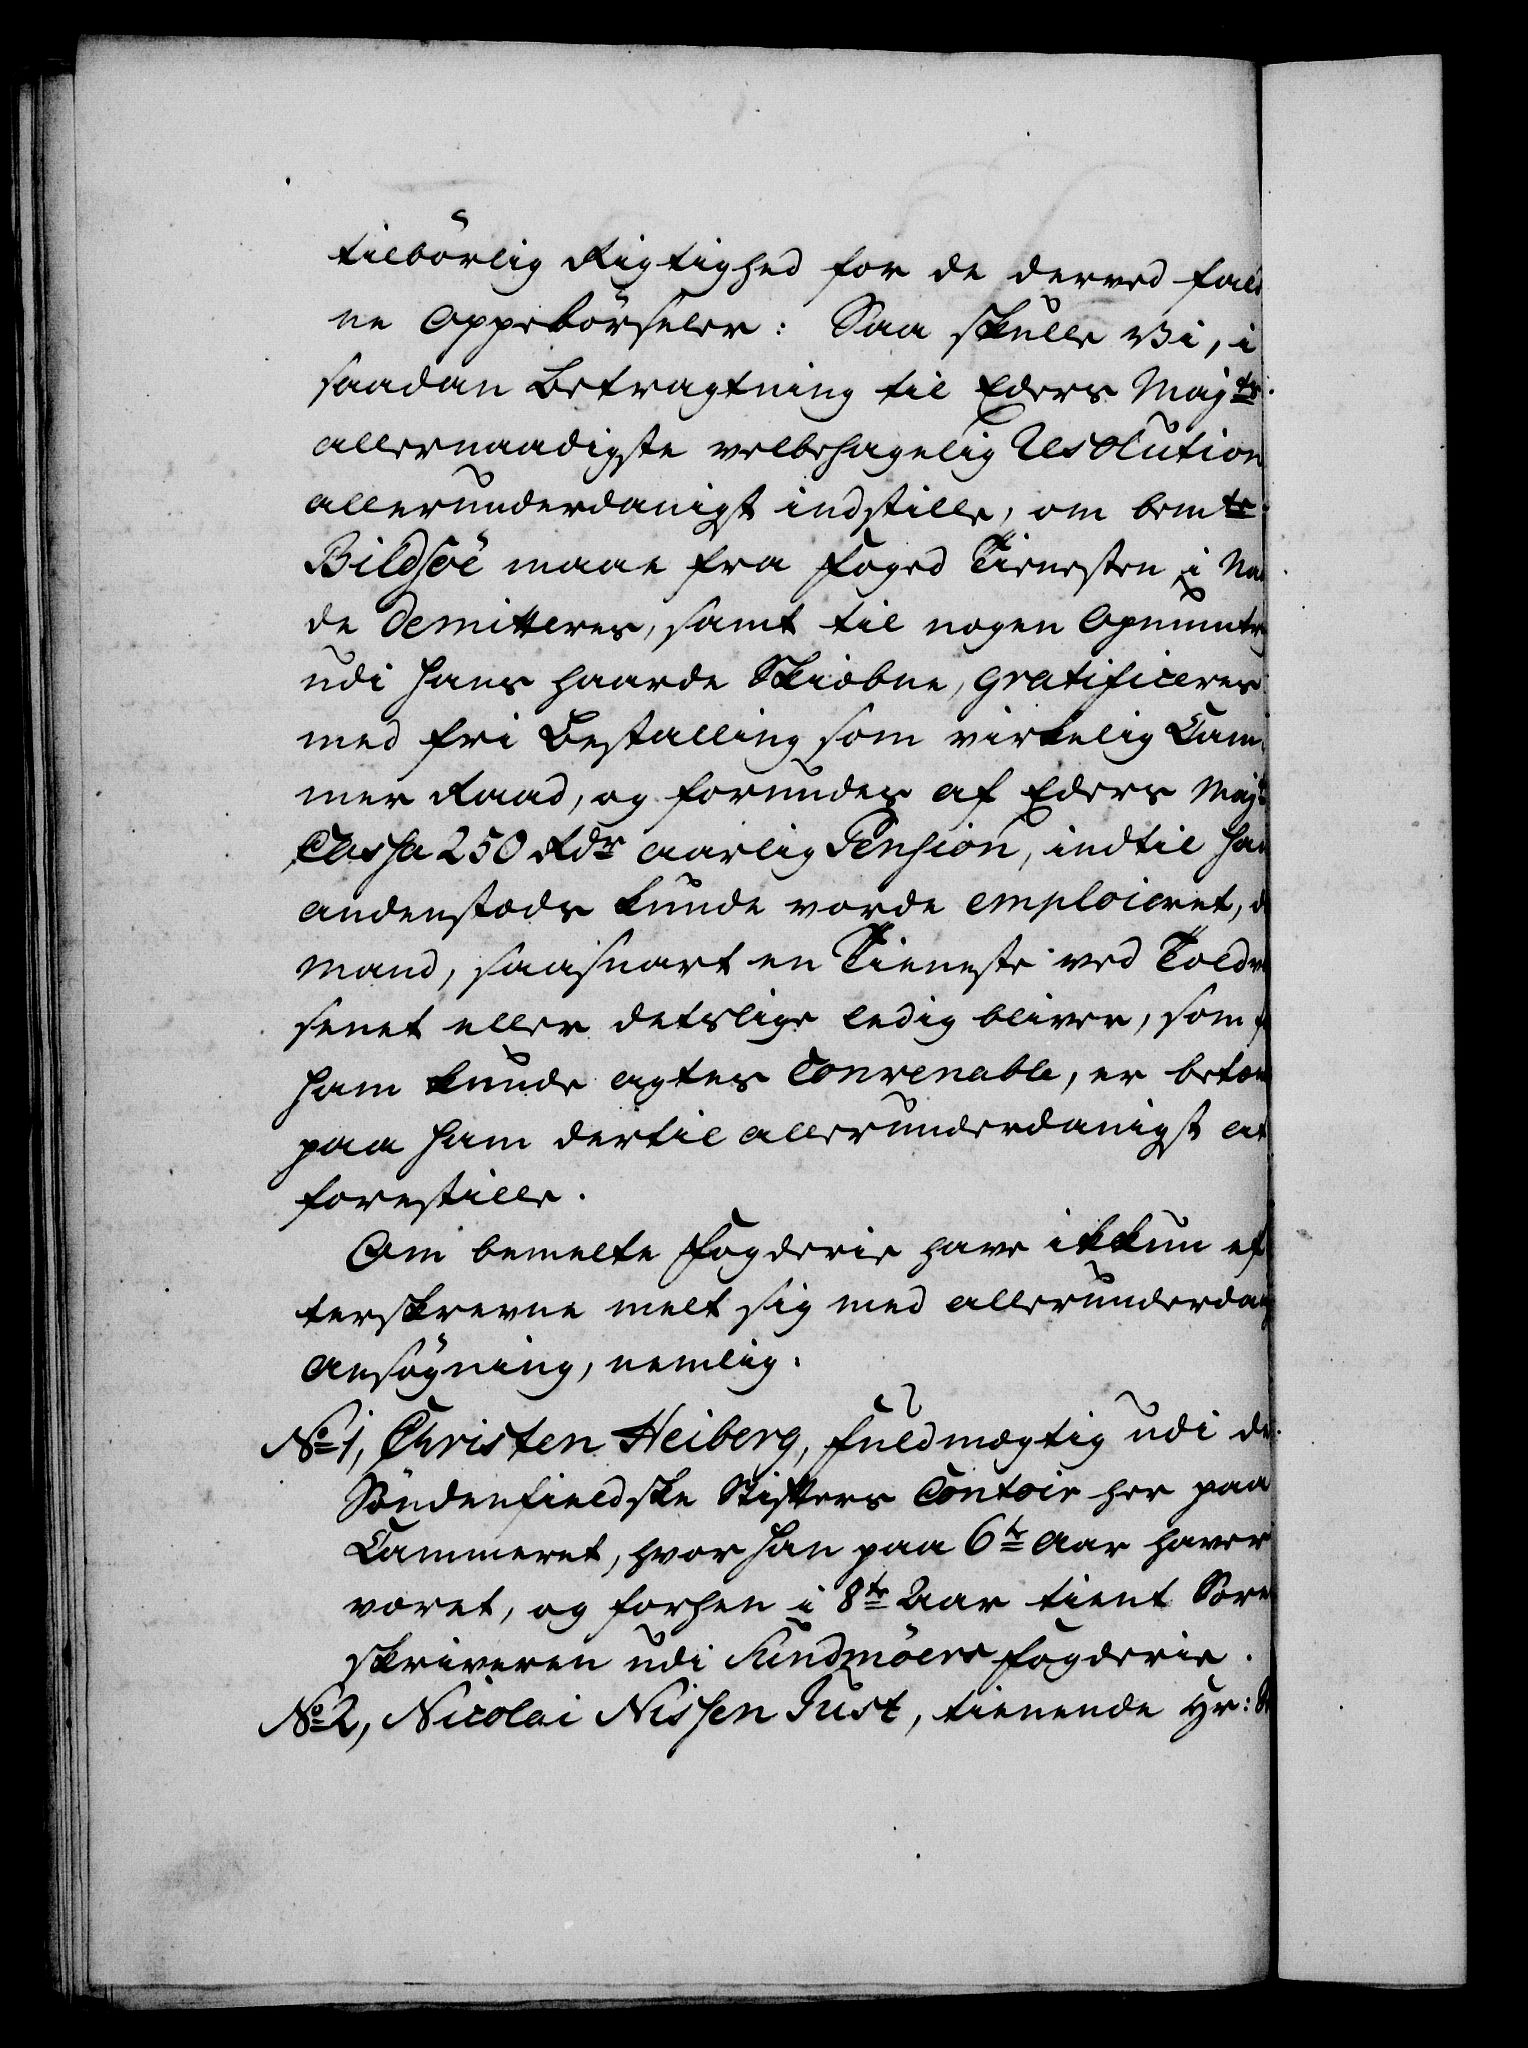 tilbörlig Rigtighed for de derved fald
ne Oppebörseler: Saa skulle Vi, i
saadan Betragtning til Eders Maj:ts
allernaadigste velbehagelig Resolution
allerunderdanigst indstille, om bemte
Bildsöe maae fra Foged Tienesten i Na
de demitteres, samt til nogen Opmuntr
udi hans haarde Skiæbne, gratificeres
med fri Bestalling som virkelig Cam
mer Raad, og forundes af Eders Maj:ts
Cassa 250 Rdr aarlig Pension, indtil han
andenstæds kunde vorde emploieret, d
mand, saasnart en Tieneste ved Toldv
senet eller detslige ledig bliver, som f
ham kunde agtes Convenable, er betæn
paa ham dertil allerunderdanigst at
forestille.
Om bemelte Fogderie have ikkun ef
terskrevne melt sig med allerunderdan
Ansögning, nemlig.
No 1, Christen Heiberg, Fuldmægtig udi de
Söndenfieldske Stifters Contoir her paa
Cammeret, hvor han paa 6te Aar haver
været, og forhen i 8te Aar tient Sore
skriveren udi Sundmöers Fogderie.
No 2, Nicolai Nissen Just, tienende Hr: